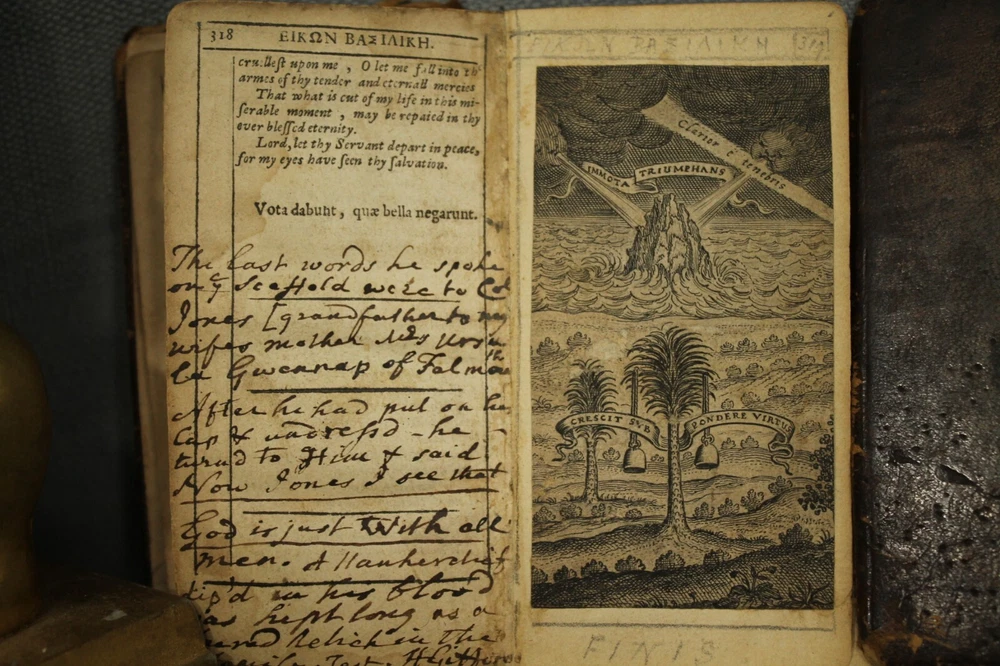 318 ΕΙΚΩΝ ΒΑΣΙΛΙΚΗ.
cruellest upon me , O let me fall into th
armes of thy tender and eternall mercies
That what is cut of my life in this mi-
serable moment , may be repaied in thy
ever blessed eternity.
Lord, let thy Servant depart in peace,
for my eyes have seen thy salvation.
Vota dabunt, quæ bella negarunt.
The last words he spoke
on y scaffold were to Co
Jones [grandfather to my
wifes mother Mrs Ursu
la Gwennap of Falmou
After he had put on his
cap & undressd - he
turnd to Him & said
Now Jones I see that
God is just With all
men. A Hankerchief
dip'd in his blood
was kept long as a
relick in the
ΕΙΚΩΝ ΒΑΣΙΛΙΚΗ 319
Clarior é tenebris
INMOTA TRIUMPHANS
CRESCIT SVB PONDERE VIRTUS
FINIS